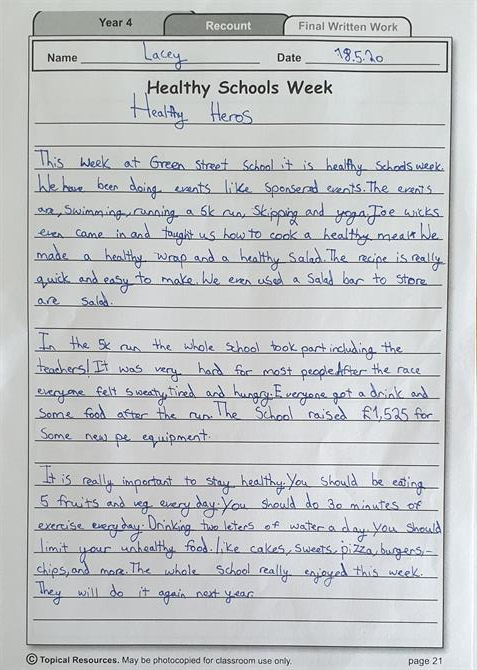 Year 4
Recount
Final Written Work
Name Lacey Date 18.5.20
Healthy Schools Week
Healthy Heros
This Week at Green Street School it is healthy schools week.
We have been doing events like sponsered events. The events
are, Swimming, running a 5k run, Skipping and yoga. Joe wicks
even came in and taught us how to cook a healthy meal. We
made a healthy wrap and a healthy Salad. The recipe is really
quick and easy to make. We even used a Salad bar to Store
are salad.
In the 5k run the whole school took part including the
teachers! It was very hard for most people. After the race
everyone felt sweaty, tired and hungry. Everyone got a drink and
Some food after the run. The School raised £1,525 for
Some new pe equipment.
It is really important to stay healthy. You should be eating
5 fruits and veg every day. You should do 30 minutes of
exercise everyday. Drinking two leters of water a day. You Should
limit your unhealthy food. like cakes, sweets, pizza, burgers,
chips, and more. The whole School really enjoyed this week.
They will do it again next year.
© Topical Resources. May be photocopied for classroom use only. page 21